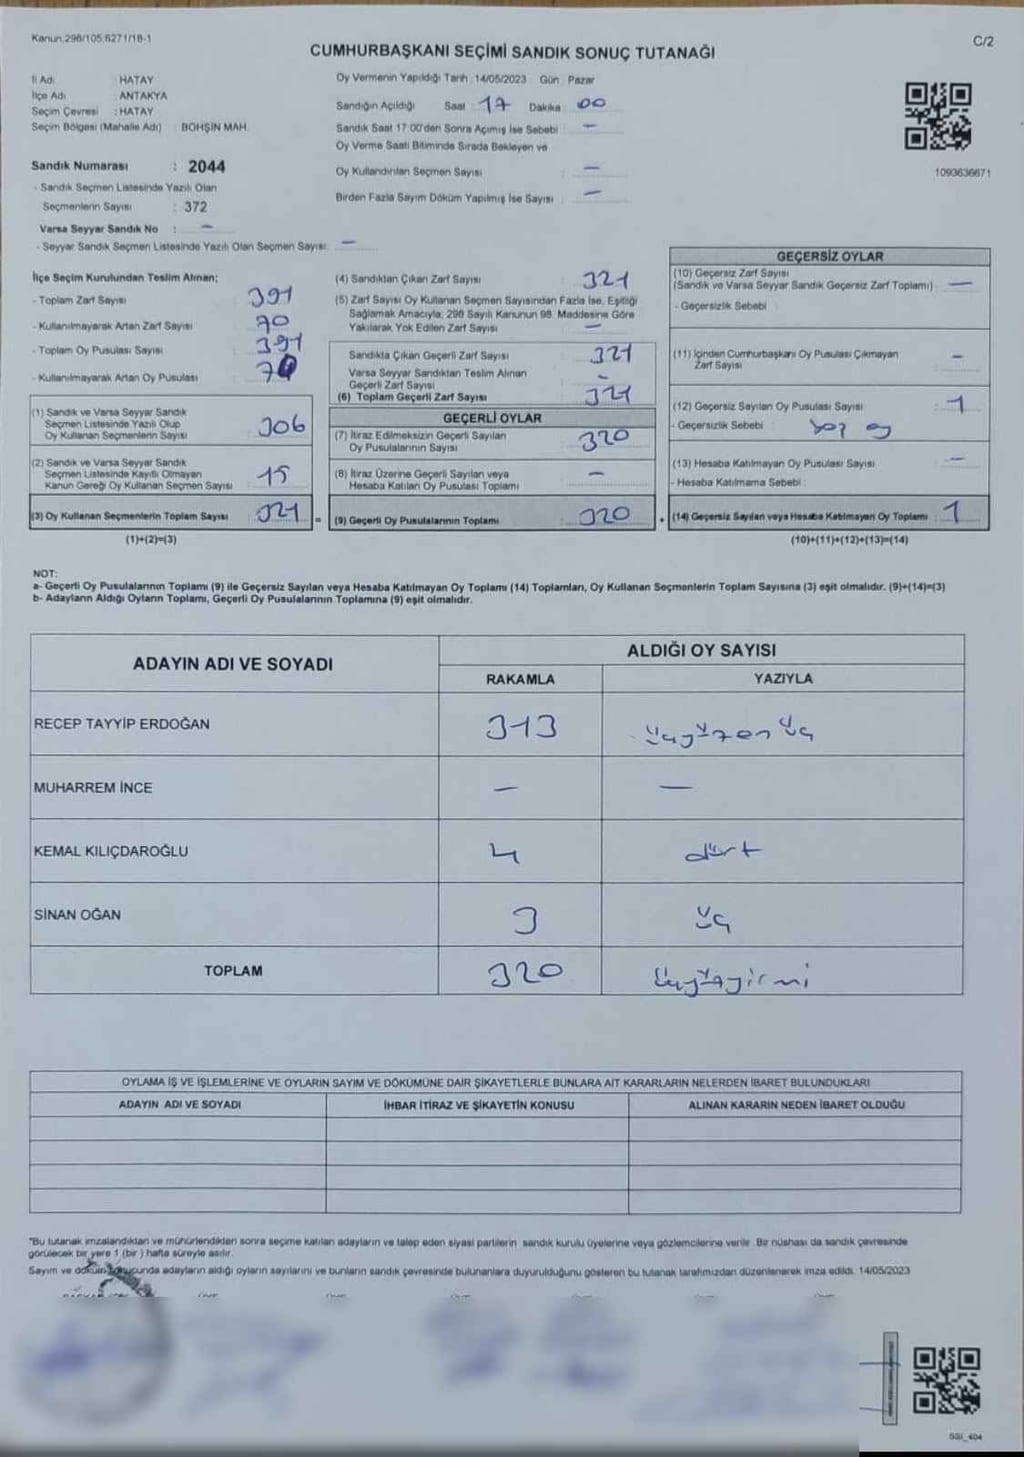 Kanun,298/105,6271/18-1
C/2
CUMHURBAŞKANI SEÇİMİ SANDIK SONUÇ TUTANAĞI
İl Adı : HATAY
İlçe Adı : ANTAKYA
Seçim Çevresi : HATAY
Seçim Bölgesi (Mahalle Adı) : BOHŞİN MAH.
Sandık Numarası : 2044
- Sandık Seçmen Listesinde Yazılı Olan
Seçmenlerin Sayısı : 372
Varsa Seyyar Sandık No : —
- Seyyar Sandık Seçmen Listesinde Yazılı Olan Seçmen Sayısı: —
Oy Vermenin Yapıldığı Tarih :14/05/2023 Gün : Pazar
Sandığın Açıldığı Saat 17 Dakika 00
Sandık Saat 17:00'den Sonra Açımış İse Sebebi : —
Oy Verme Saati Bitiminde Sırada Bekleyen ve
Oy Kullandırılan Seçmen Sayısı : —
Birden Fazla Sayım Döküm Yapılmış İse Sayısı : —
1093636671
İlçe Seçim Kurulundan Teslim Alınan;
- Toplam Zarf Sayısı : 391
- Kullanılmayarak Artan Zarf Sayısı : 70
- Toplam Oy Pusulası Sayısı : 391
- Kullanılmayarak Artan Oy Pusulası : 70
(1) Sandık ve Varsa Seyyar Sandık
Seçmen Listesinde Yazılı Olup
Oy Kullanan Seçmenlerin Sayısı : 306
(2) Sandık ve Varsa Seyyar Sandık
Seçmen Listesinde Kayıtlı Olmayan
Kanun Gereği Oy Kullanan Seçmen Sayısı : 15
(3) Oy Kullanan Seçmenlerin Toplam Sayısı : 321
(1)+(2)=(3)
(4) Sandıktan Çıkan Zarf Sayısı : 321
(5) Zarf Sayısı Oy Kullanan Seçmen Sayısından Fazla İse, Eşitliği
Sağlamak Amacıyla; 298 Sayılı Kanunun 98. Maddesine Göre
Yakılarak Yok Edilen Zarf Sayısı : —
Sandıkta Çıkan Geçerli Zarf Sayısı : 321
Varsa Seyyar Sandıktan Teslim Alınan
Geçerli Zarf Sayısı : —
(6) Toplam Geçerli Zarf Sayısı : 321
GEÇERLİ OYLAR
(7) İtiraz Edilmeksizin Geçerli Sayılan
Oy Pusulalarının Sayısı : 320
(8) İtiraz Üzerine Geçerli Sayılan veya
Hesaba Katılan Oy Pusulası Toplamı : —
= (9) Geçerli Oy Pusulalarının Toplamı : 320
GEÇERSİZ OYLAR
(10) Geçersiz Zarf Sayısı
(Sandık ve Varsa Seyyar Sandık Geçersiz Zarf Toplamı) : —
- Geçersizlik Sebebi :
(11) İçinden Cumhurbaşkanı Oy Pusulası Çıkmayan
Zarf Sayısı : —
(12) Geçersiz Sayılan Oy Pusulası Sayısı : 1
- Geçersizlik Sebebi : boş oy
(13) Hesaba Katılmayan Oy Pusulası Sayısı : —
- Hesaba Katılmama Sebebi :
+ (14) Geçersiz Sayılan veya Hesaba Katılmayan Oy Toplamı : 1
(10)+(11)+(12)+(13)=(14)
NOT:
a- Geçerli Oy Pusulalarının Toplamı (9) ile Geçersiz Sayılan veya Hesaba Katılmayan Oy Toplamı (14) Toplamları, Oy Kullanan Seçmenlerin Toplam Sayısına (3) eşit olmalıdır. (9)+(14)=(3)
b- Adayların Aldığı Oyların Toplamı, Geçerli Oy Pusulalarının Toplamına (9) eşit olmalıdır.
ADAYIN ADI VE SOYADI
ALDIĞI OY SAYISI
RAKAMLA YAZIYLA
RECEP TAYYİP ERDOĞAN 313 üçyüzonüç
MUHARREM İNCE — —
KEMAL KILIÇDAROĞLU 4 dört
SİNAN OĞAN 3 üç
TOPLAM 320 üçyüzyirmi
OYLAMA İŞ VE İŞLEMLERİNE VE OYLARIN SAYIM VE DÖKÜMÜNE DAİR ŞİKAYETLERLE BUNLARA AİT KARARLARIN NELERDEN İBARET BULUNDUKLARI
ADAYIN ADI VE SOYADI İHBAR İTİRAZ VE ŞİKAYETİN KONUSU ALINAN KARARIN NEDEN İBARET OLDUĞU
"Bu tutanak imzalandıktan ve mühürlendikten sonra seçime katılan adayların ve talep eden siyasi partilerin sandık kurulu üyelerine veya gözlemcilerine verilir. Bir nüshası da sandık çevresinde
görülecek bir yere 1 (bir ) hafta süreyle asılır.
Sayım ve döküm sonucunda adayların aldığı oyların sayılarını ve bunların sandık çevresinde bulunanlara duyurulduğunu gösteren bu tutanak tarafımızdan düzenlenerek imza edildi. 14/05/2023